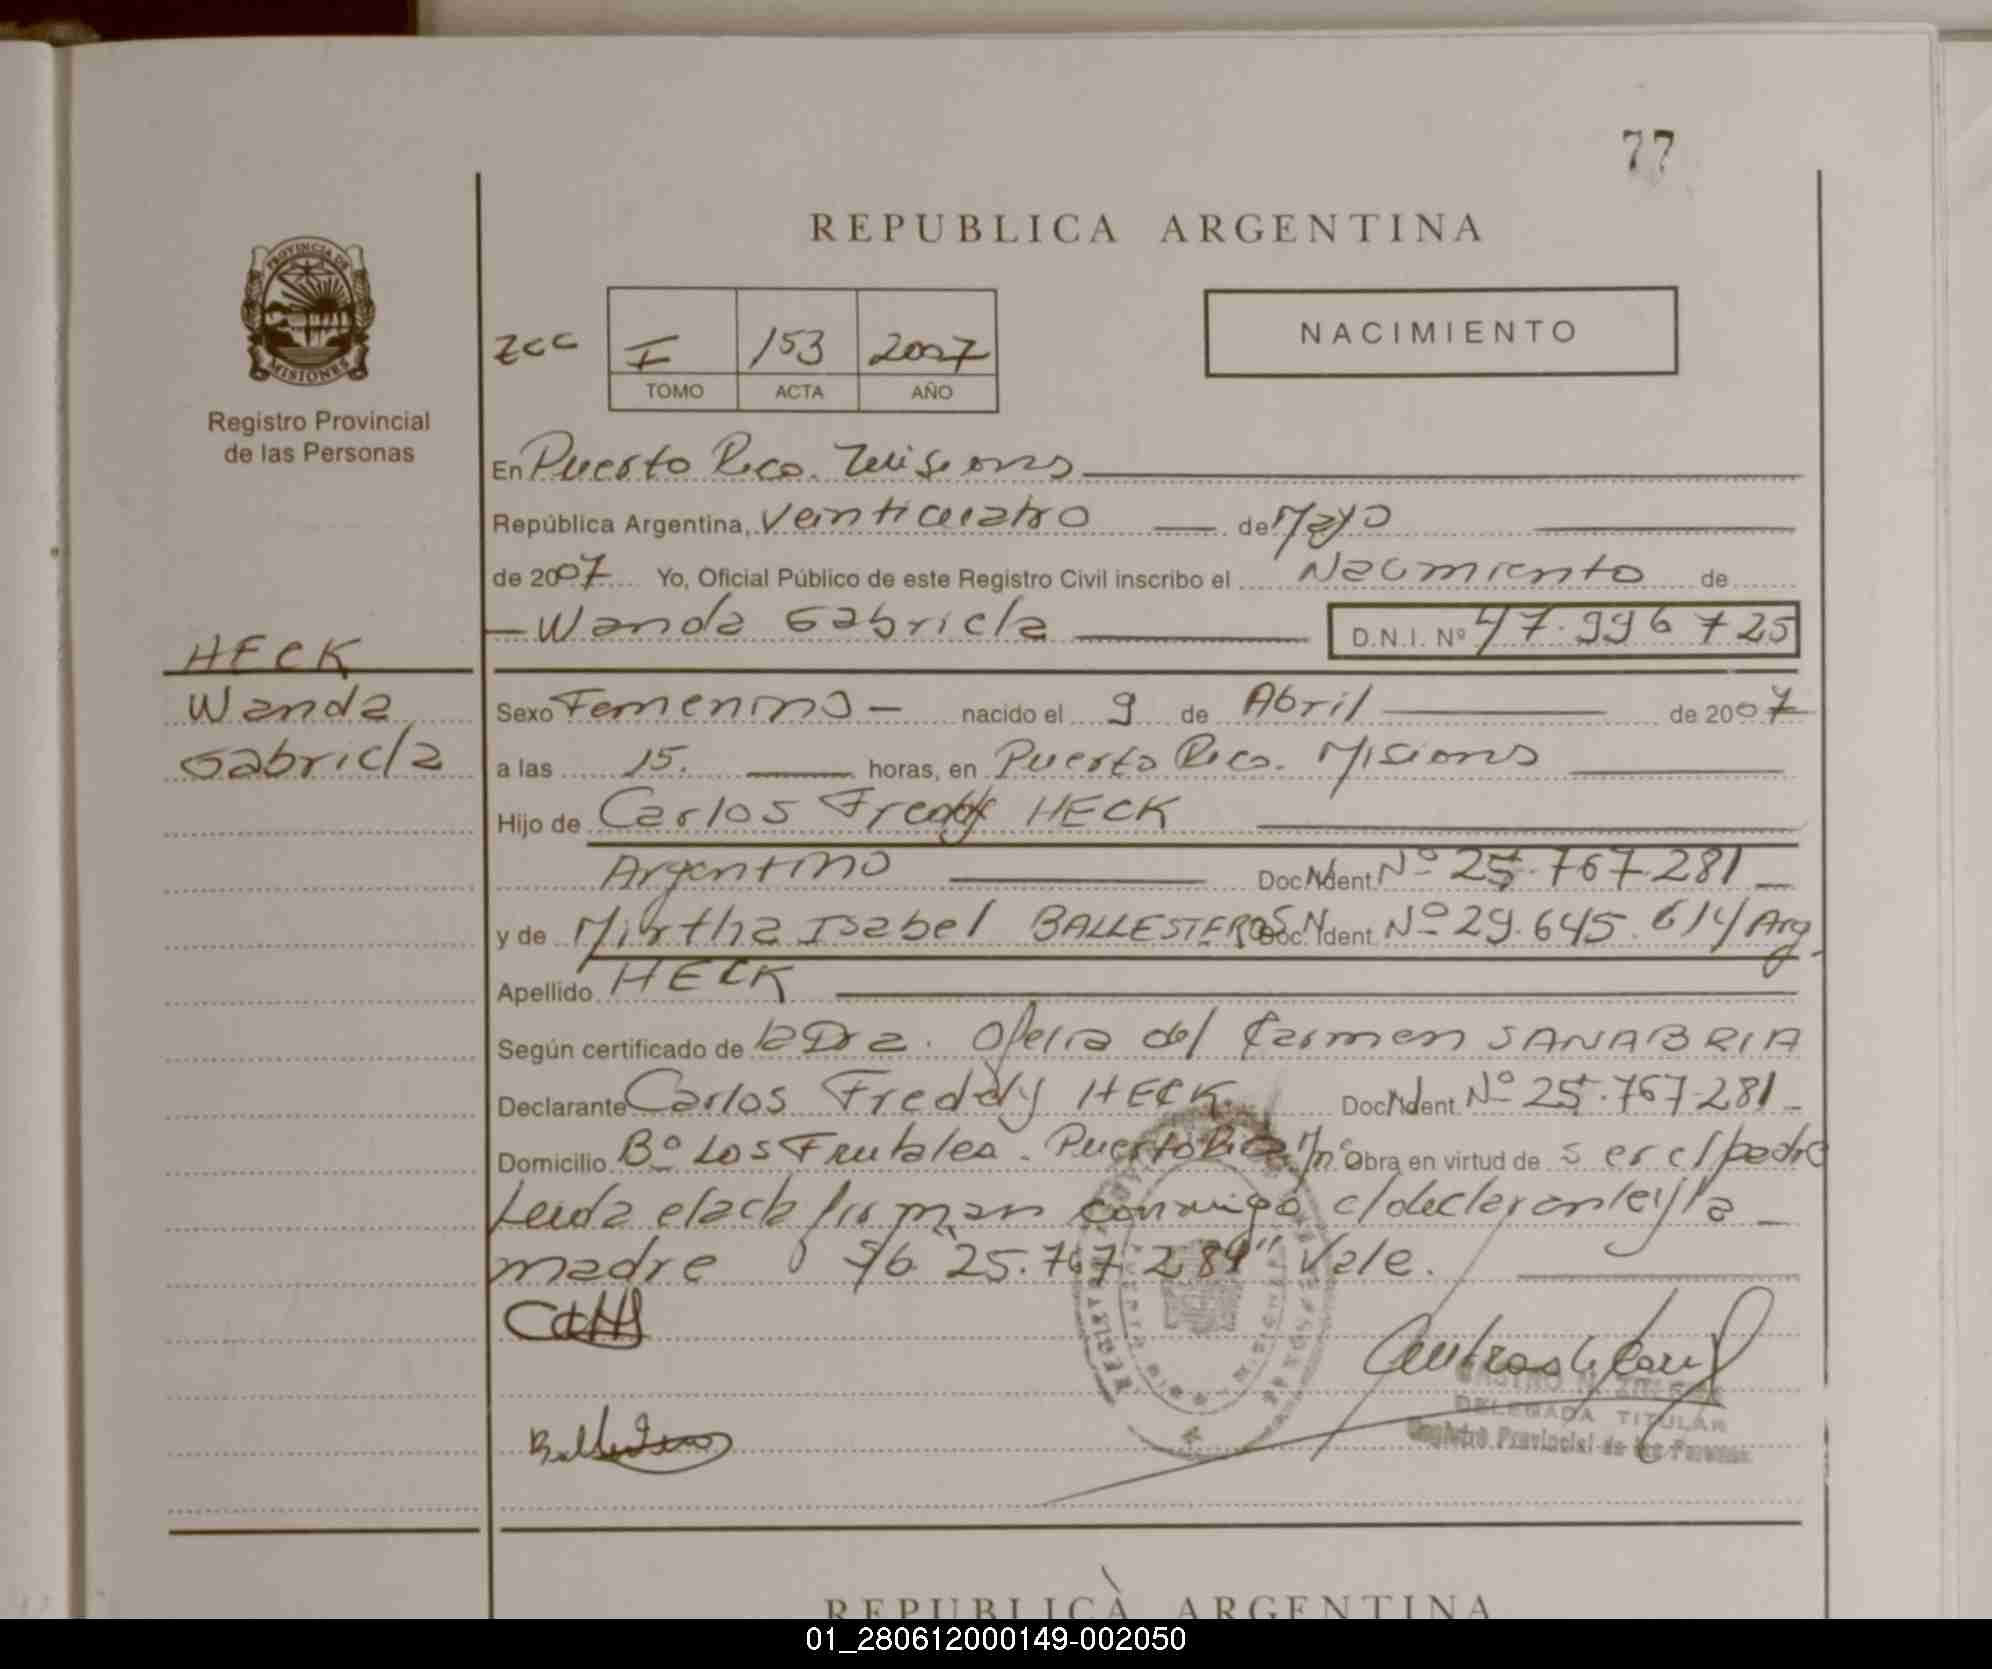 77
REPUBLICA ARGENTINA
PROVINCIA DE
MISIONES
Registro Provincial
de las Personas
I 153 2007
TOMO ACTA AÑO
NACIMIENTO
En Puerto Rico. Misiones
República Argentina, Veinticuatro de Mayo
de 2007 Yo, Oficial Público de este Registro Civil inscribo el Nacimiento de
Wanda Gabriela D.N.I. Nº 47.996725
HECK
Wanda
Gabriela
Sexo Femenino - nacido el 9 de Abril de 2007
a las 15. horas, en Puerto Rico. Misiones
Hijo de Carlos Freddy HECK
Argentino Doc. Ident. Nº 25.767.281
y de Mirtha Isabel BALLESTEROS Doc. Ident. Nº 29.645.614 Arg.
Apellido HECK
Según certificado de la Dra. Ofelia del Carmen SANABRIA
Declarante Carlos Freddy HECK. Doc. Ident. Nº 25.767.281
Domicilio Bº Los Frutales. Puerto Rico Mnes Obra en virtud de ser el padre
Leida el acta firman conmigo el declarante y la
madre S/b "25.767.281" Vale.
DELEGADA TITULAR
Registro Provincial de las Personas
REPUBLICA ARGENTINA
01_280612000149-002050